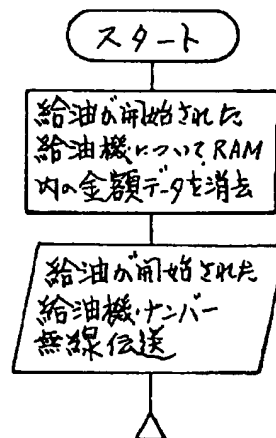 スタート
給油が開始された
給油機についてRAM
内の金額データを消去
給油が開始された
給油機・ナンバー
無線伝送